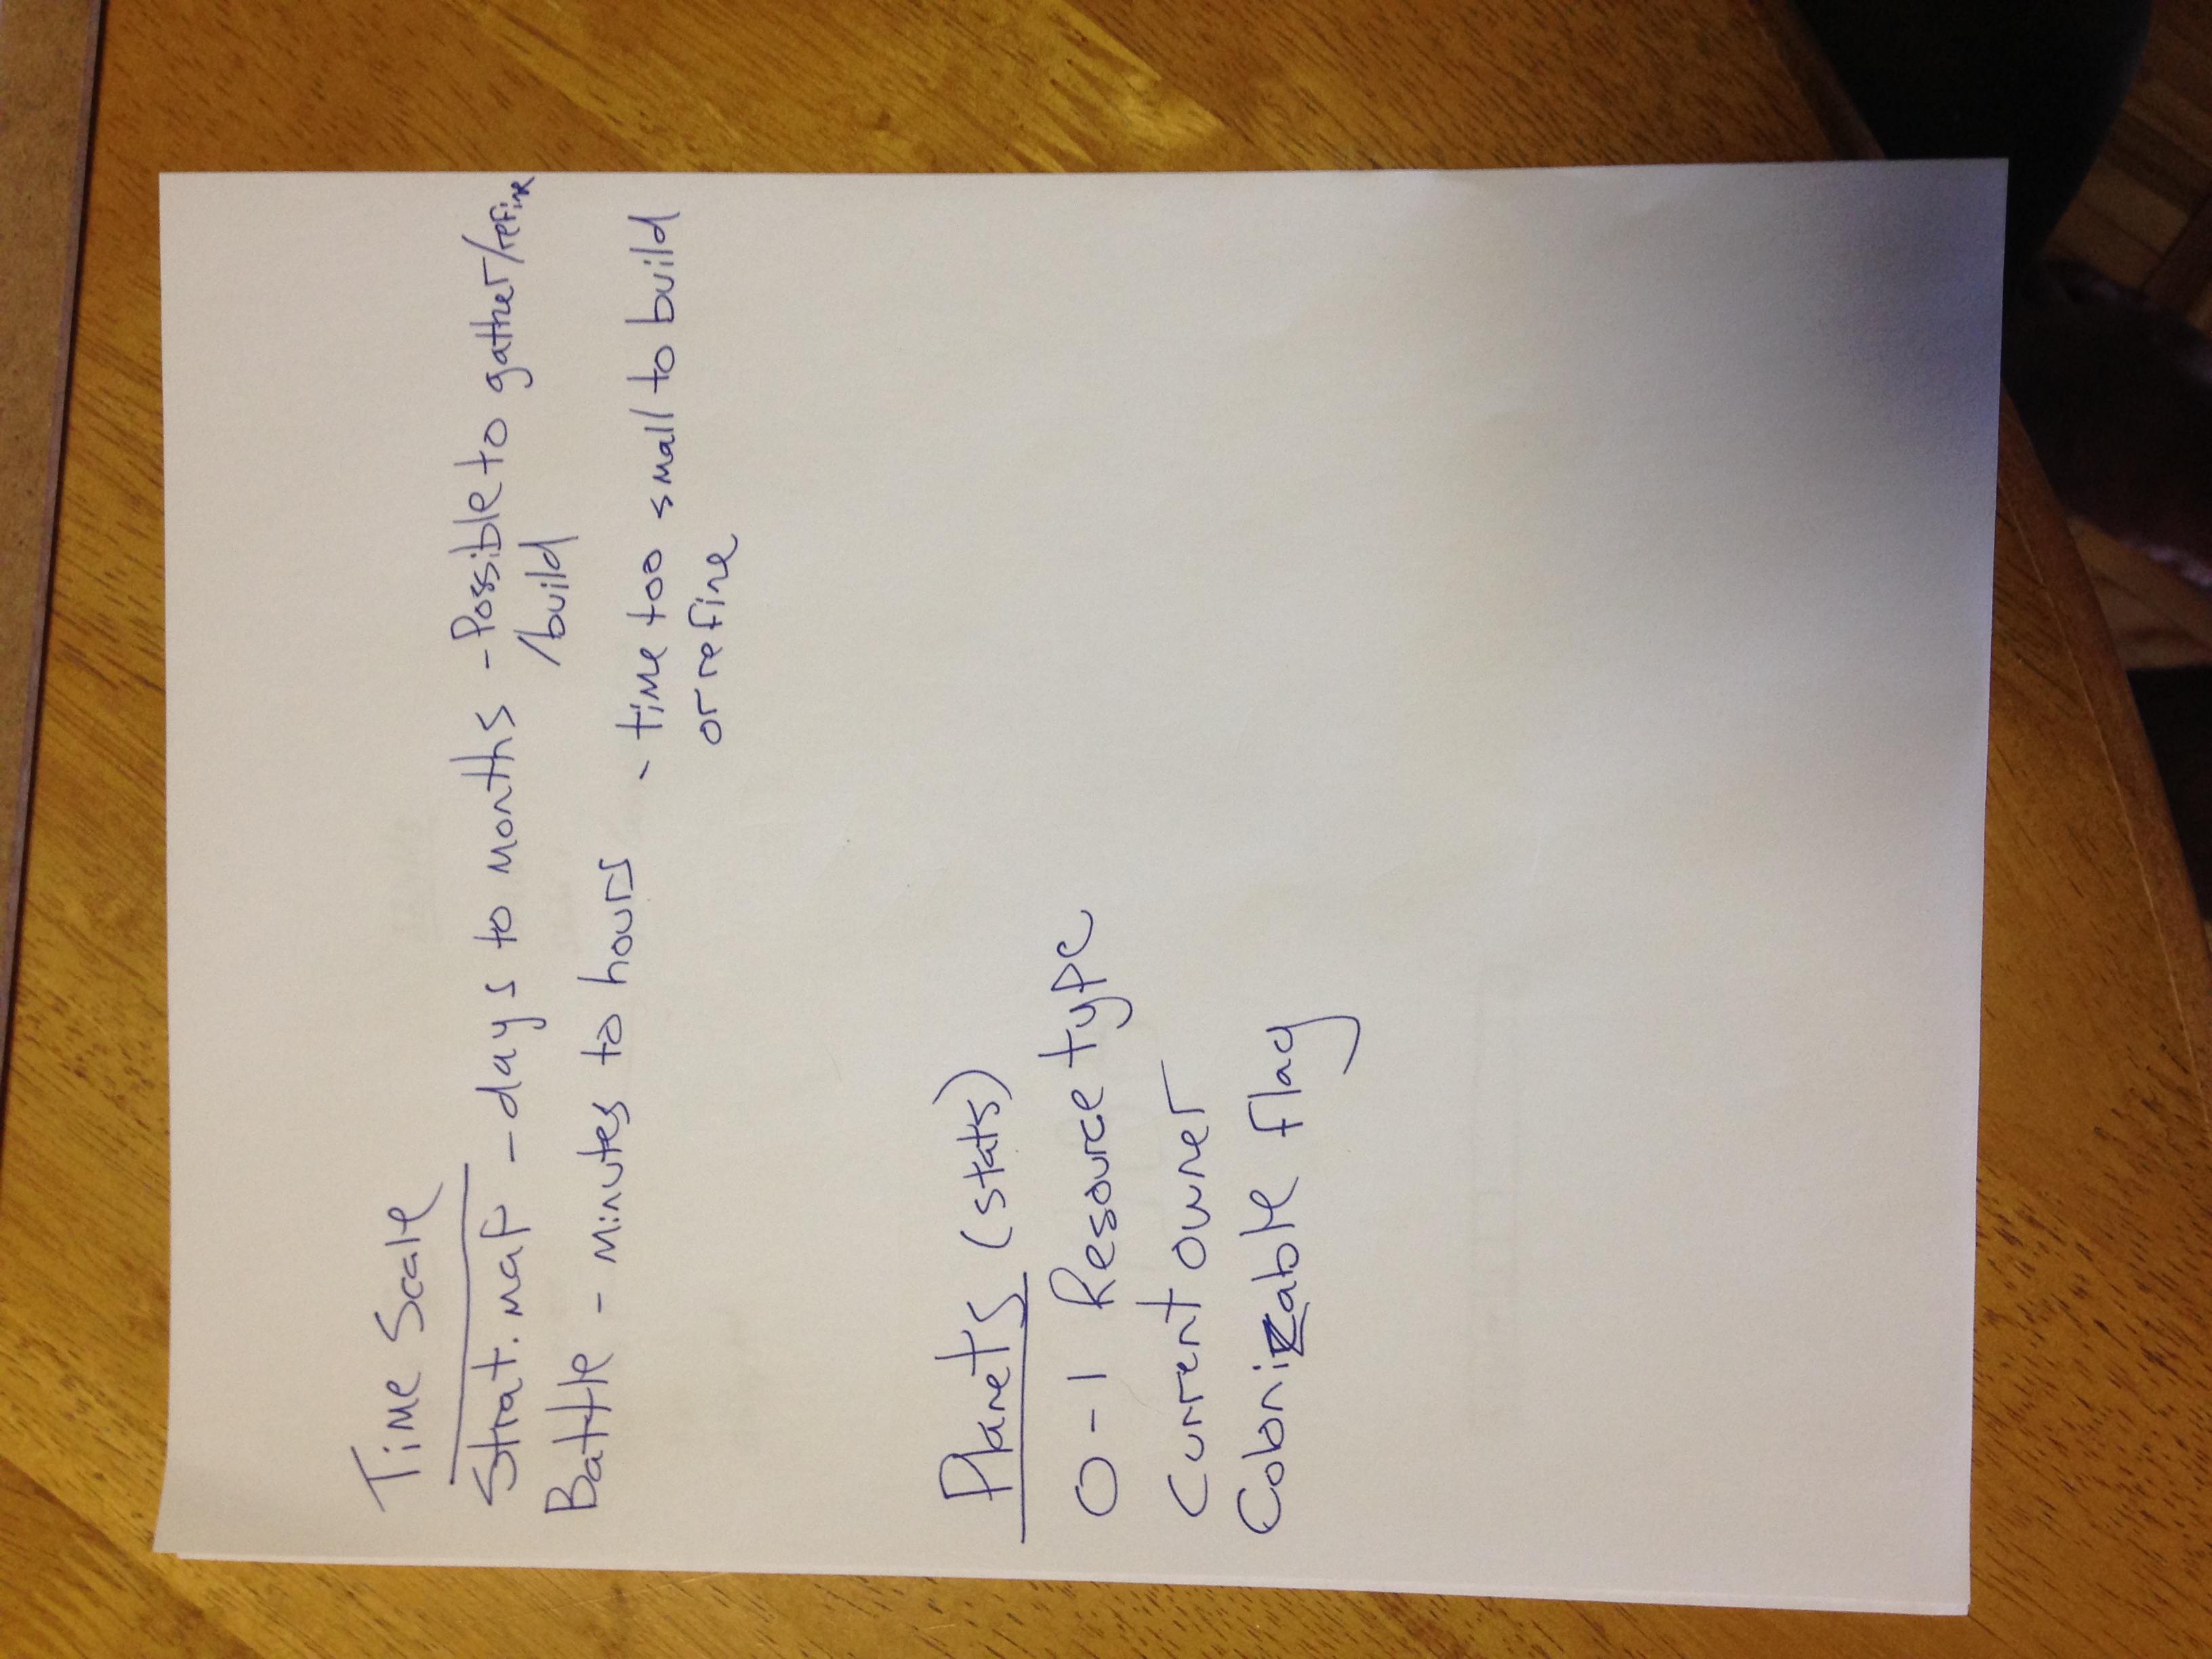 Time Scale
Strat. map - days to months - Possible to gather/refine
/build
Battle - minutes to hours
- time too small to build
or refine
Planets (stats)
0-1 Resource type
Current owner
Colonizable flag